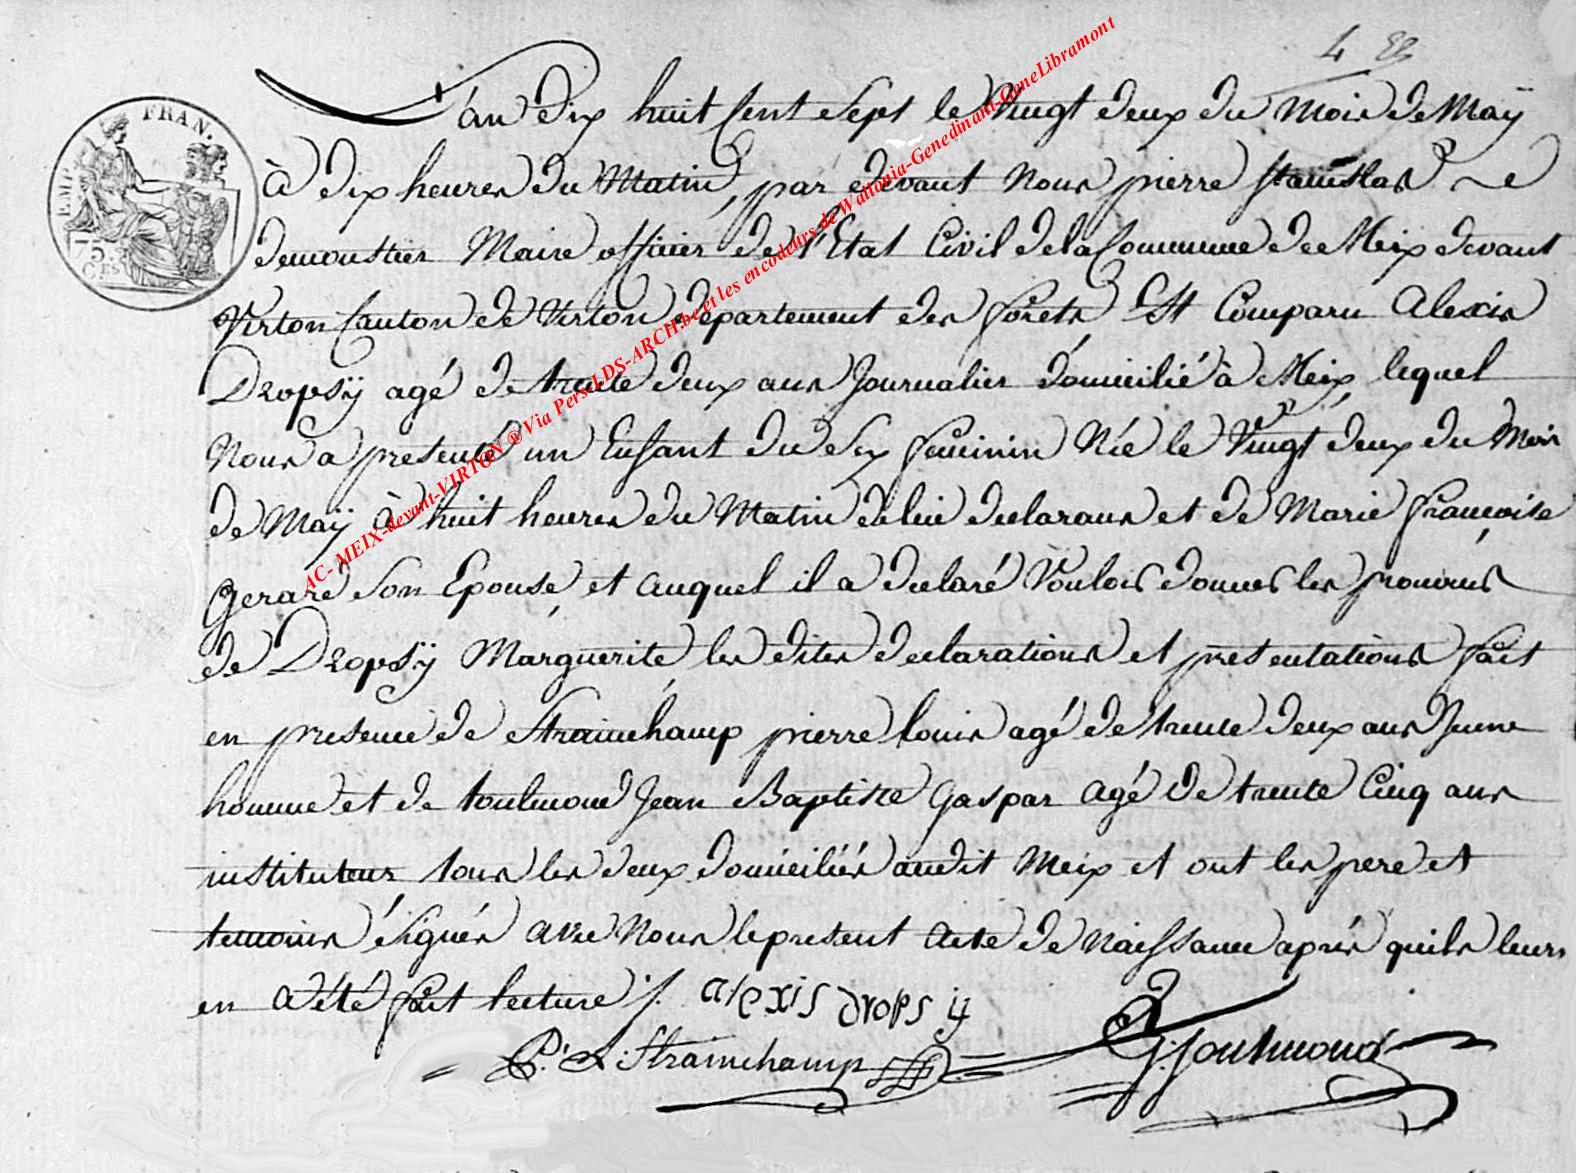 4
EMP. FRAN.
75
CES
L'an Dix huit Cent Sept le Vingt deux du Mois de Maÿ
à dix heures du Matin, par devant Nous pierre stanislas
demoustier Maire officier de l'Etat Civil de la Commune de Meix devant
Virton Canton de Virton departement des forêts Est Comparu Alexis
Dropsÿ agé de trente deux ans Journalier domicilié à Meix, lequel
Nous a presenté un Enfant du Sex feminin Née le Vingt deux du Mois
de Maÿ à huit heures du Matin de lui declarans et de Marie françoise
Gerard Son Epouse, et auquel il a declaré Vouloir donner les prenoms
de Dropsÿ Marguerite, les dites declarations et presentations fait
en presence de Strainchamp pierre louis agé de trente deux ans Jeune
homme et de toulmond Jean Baptiste Gaspar agé de trente Cinq ans
instituteur tous les deux domiciliés audit Meix et ont les pere et
temoins signés avec Nous le present acte de Naissance aprés quils leurs
en a été fait lecture ./. alexis dropsij
P. L. Strainchamp
G. Toulmond
AC- MEIX-devant-VIRTON ® Via Pers-LDS-ARCH.be et les encodeurs de Wallonia-Genedinant-GeneLibramont